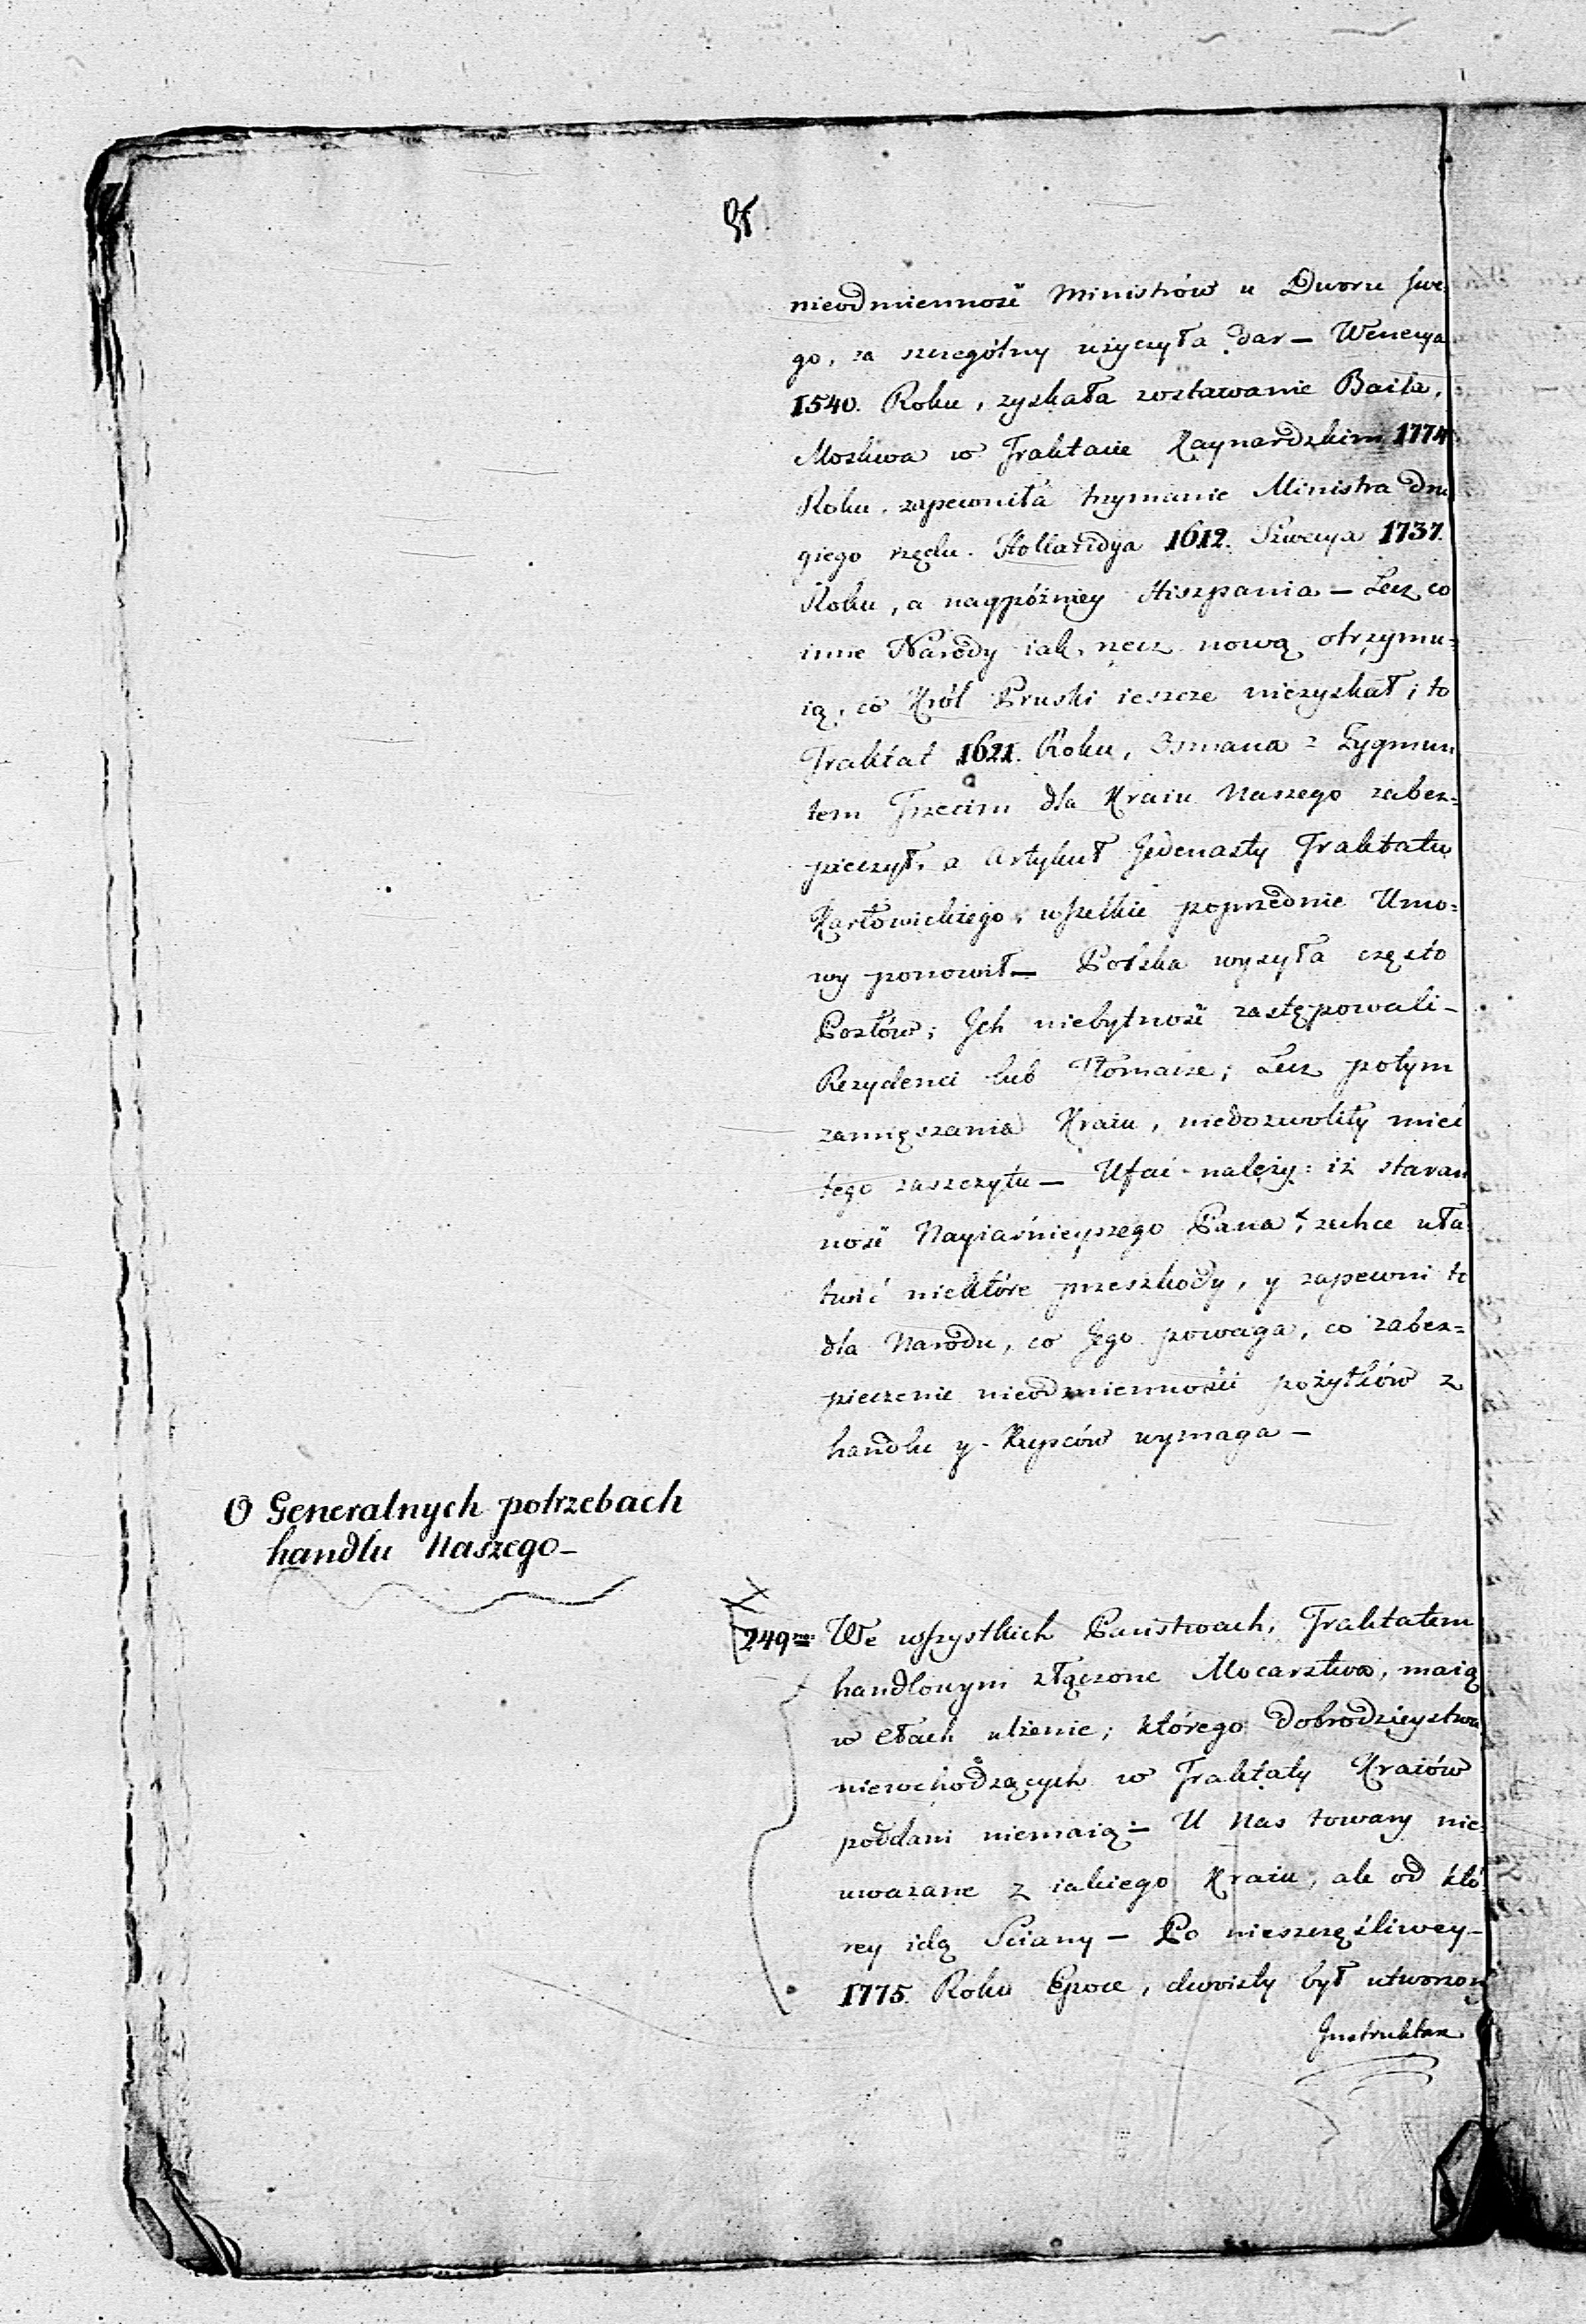 nieodmienność Ministrów u Dworu swe
go, za szczególny użyczyła dar — Wenecya
1540. Roku, zyskała zostawanie Baila,
Moskwa w Traktacie Kaynardzkim 1774
Roku, zapewniła trzymanie Ministra dru
giego rzędu. Hollandya 1612. Szwecya 1737.
Roku, a naypóżniey Hiszpania — Lecz co
inne Narody iak rzecz nową otrzymu=
ią, co Król Pruski ieszcze niezyskał; to
Traktat 1621. Roku, Osmana z Zygmun
tem Trzecim dla Kraiu Naszego zabez=
pieczył, a Artykuł Jedenasty Traktatu
Karłowickiego, wszelkie poprzednie Umo=
wy ponowił — Polska wysyła często
Posłów; Jch niebytność zastępowali —
Rezydenci lub Tłomacze; Lecz potym
zamięszania Kraiu, niedozwoliły mieć
tego zaszczytu — Ufać należy: iż staran
ność Nayiaśnieyszego Pana, zechce uła
twić niektóre przeszkody, y zapewni to
dla Narodu, co Jego powaga, co zabez=
pieczenie nieodmienności pożytków z
handlu y Kupców wymaga —
O Generalnych potrzebach
handlu Naszego —
249no We wszystkich Państwach, Traktatem
handlowym złączone Mocarstwa, maią
w Cłach ulżenie; którego dobrodzieystwa
niewchodzących w Traktaty Kraiów
poddani niemaią — U Nas towary nie
uważane z iakiego Kraiu, ale od któ
rey idą Sciany — Po nieszczęśliwey —
1775. Roku Epoce, dwoisty był utworzony
Jnstruktarz